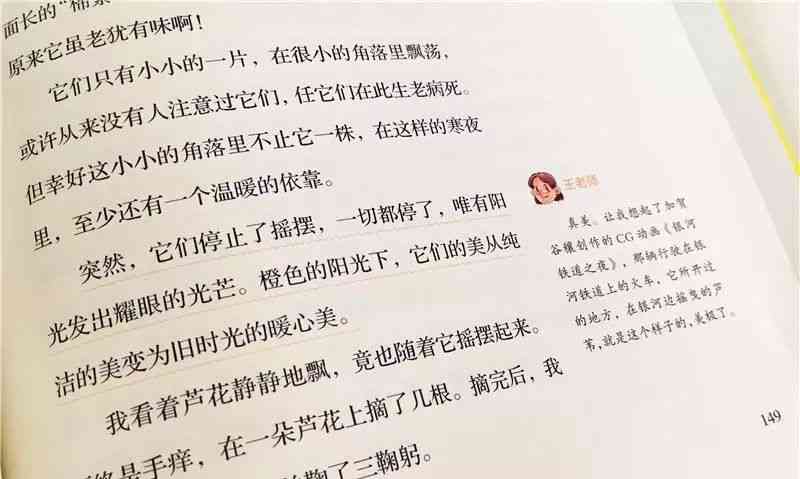 面长的“棉
原来它虽老犹有味啊！
它们只有小小的一片，在很小的角落里飘荡，
或许从来没有人注意过它们，任它们在此生老病死。
但幸好这小小的角落里不止它一株，在这样的寒夜
里，至少还有一个温暖的依靠。
突然，它们停止了摇摆，一切都停了，唯有阳
光发出耀眼的光芒。橙色的阳光下，它们的美从纯
洁的美变为旧时光的暖心美。
我看着芦花静静地飘，竟也随着它摇摆起来。
是手痒，在一朵芦花上摘了几根。摘完后，我
鞠了三鞠躬。
王老师
真美。让我想起了加贺
谷穰创作的CG动画《银河
铁道之夜》，那辆行驶在银
河铁道上的火车，它所开过
的地方，在银河边摇曳的芦
苇，就是这个样子的，美极了。
149